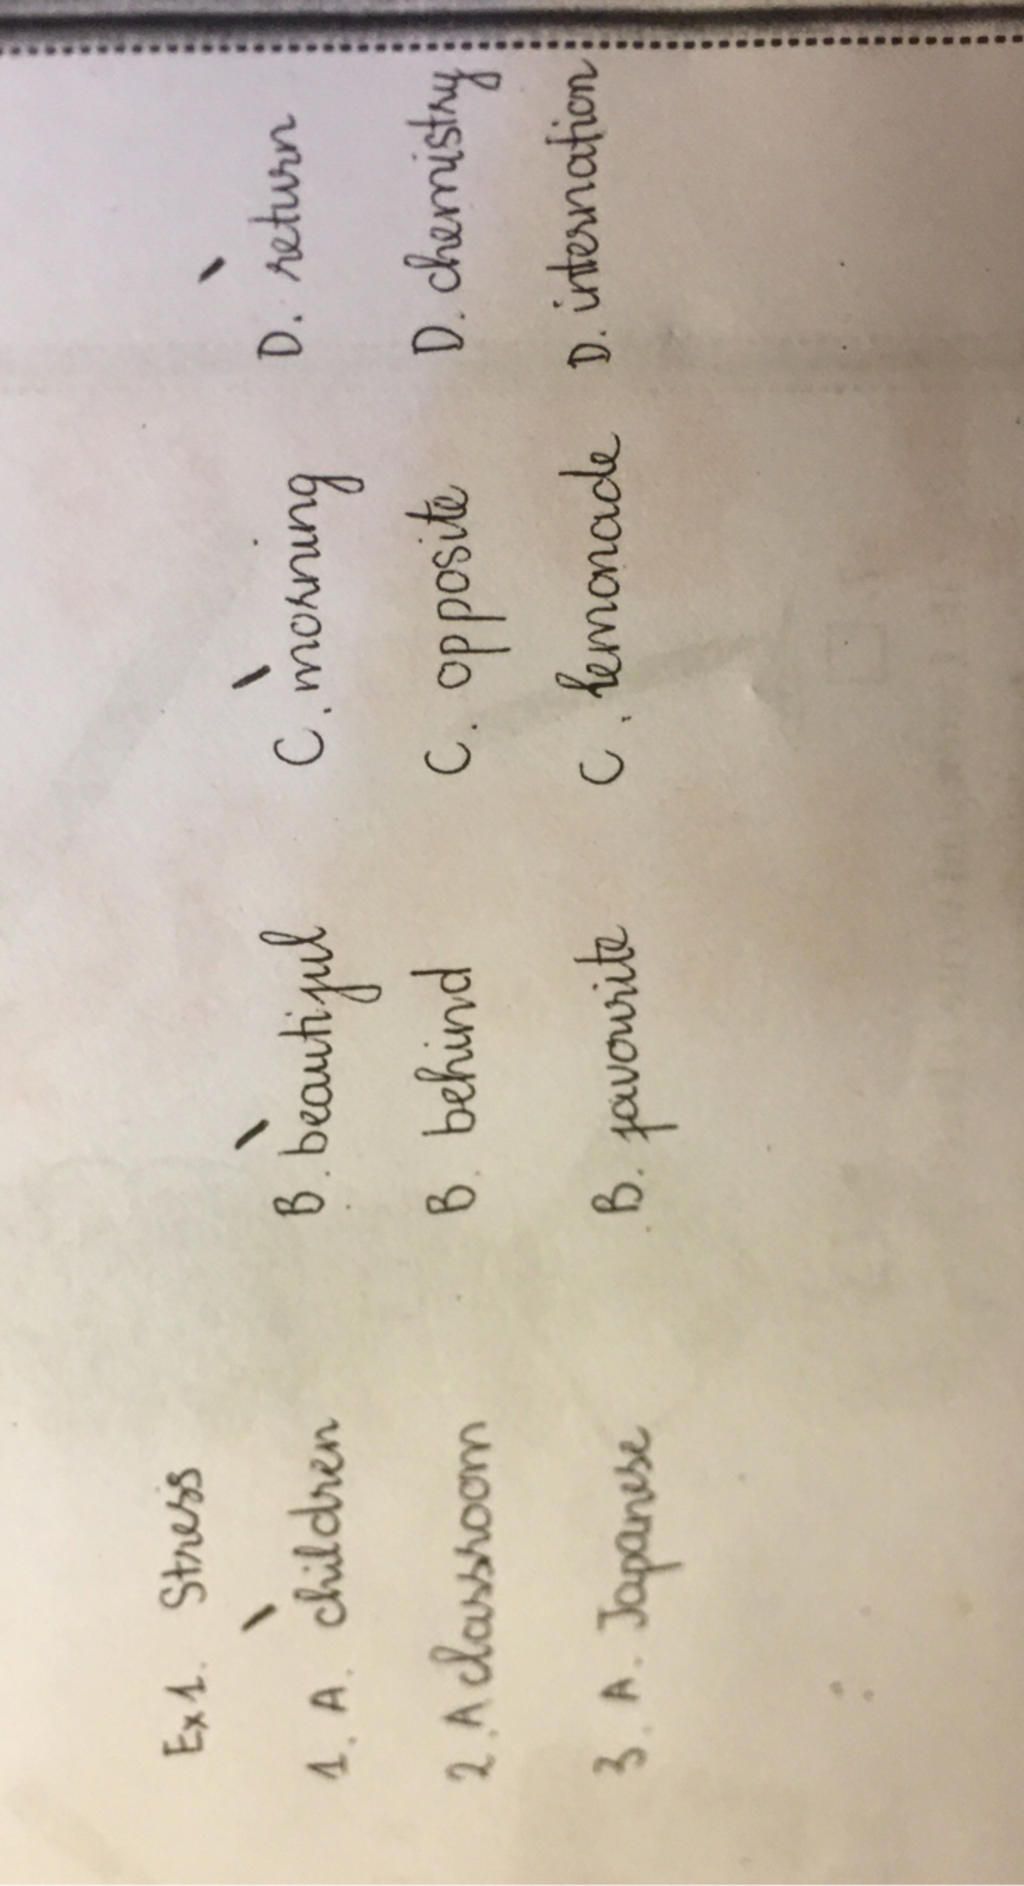 Ex1. Stress
1. A. children B. beautiful C. morning D. return
2. A classroom B. behind C. opposite D. chemistry
3. A. Japanese B. favourite C. lemonade D. internation